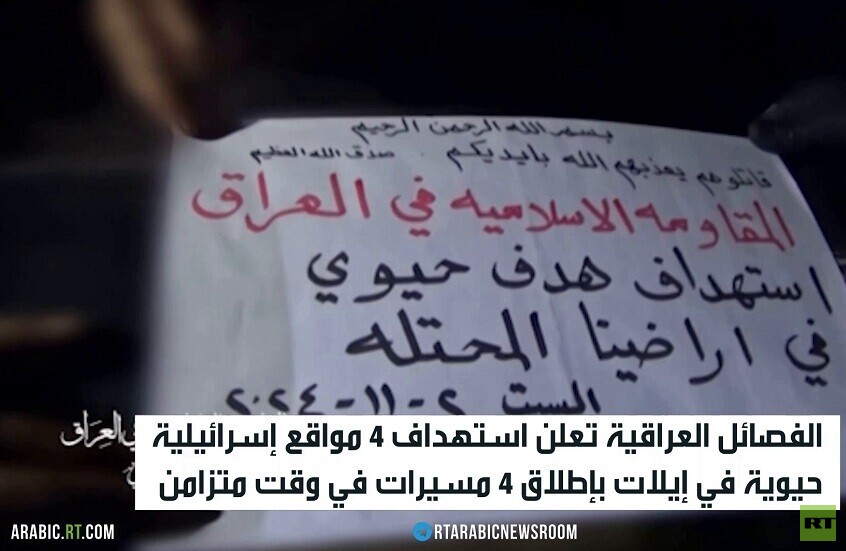 بسم الله الرحمن الرحيم
قاتلوهم يعذبهم الله بايديكم . صدق الله العظيم
المقاومه الاسلاميه في العراق
استهداف هدف حيوي
في اراضينا المحتله
السبت ٢-١١-٢٠٢٤
في العراق
الفصائل العراقية تعلن استهداف 4 مواقع إسرائيلية
حيوية في إيلات بإطلاق 4 مسيرات في وقت متزامن
ARABIC.RT.COM
RTARABICNEWSROOM
RT